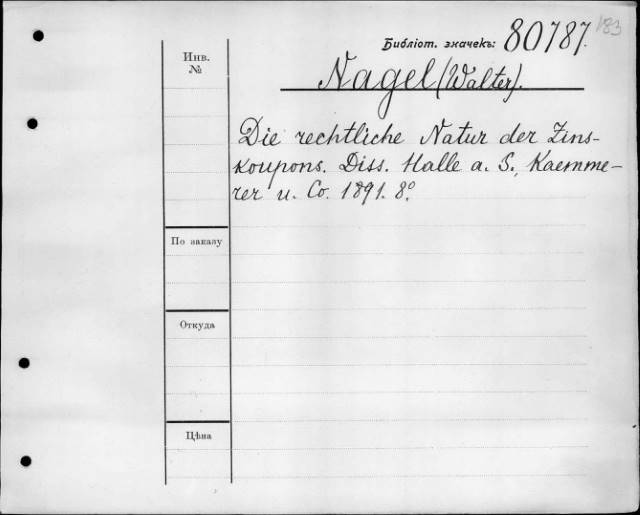 183
Библіот. значекъ: 80787.
Инв.
№
Nagel (Walter).
Die rechtliche Natur der Zins-
koupons. Diss. Halle a. S., Kaemme-
rer u. Co. 1891. 8º.
По заказу
Откуда
Цѣна